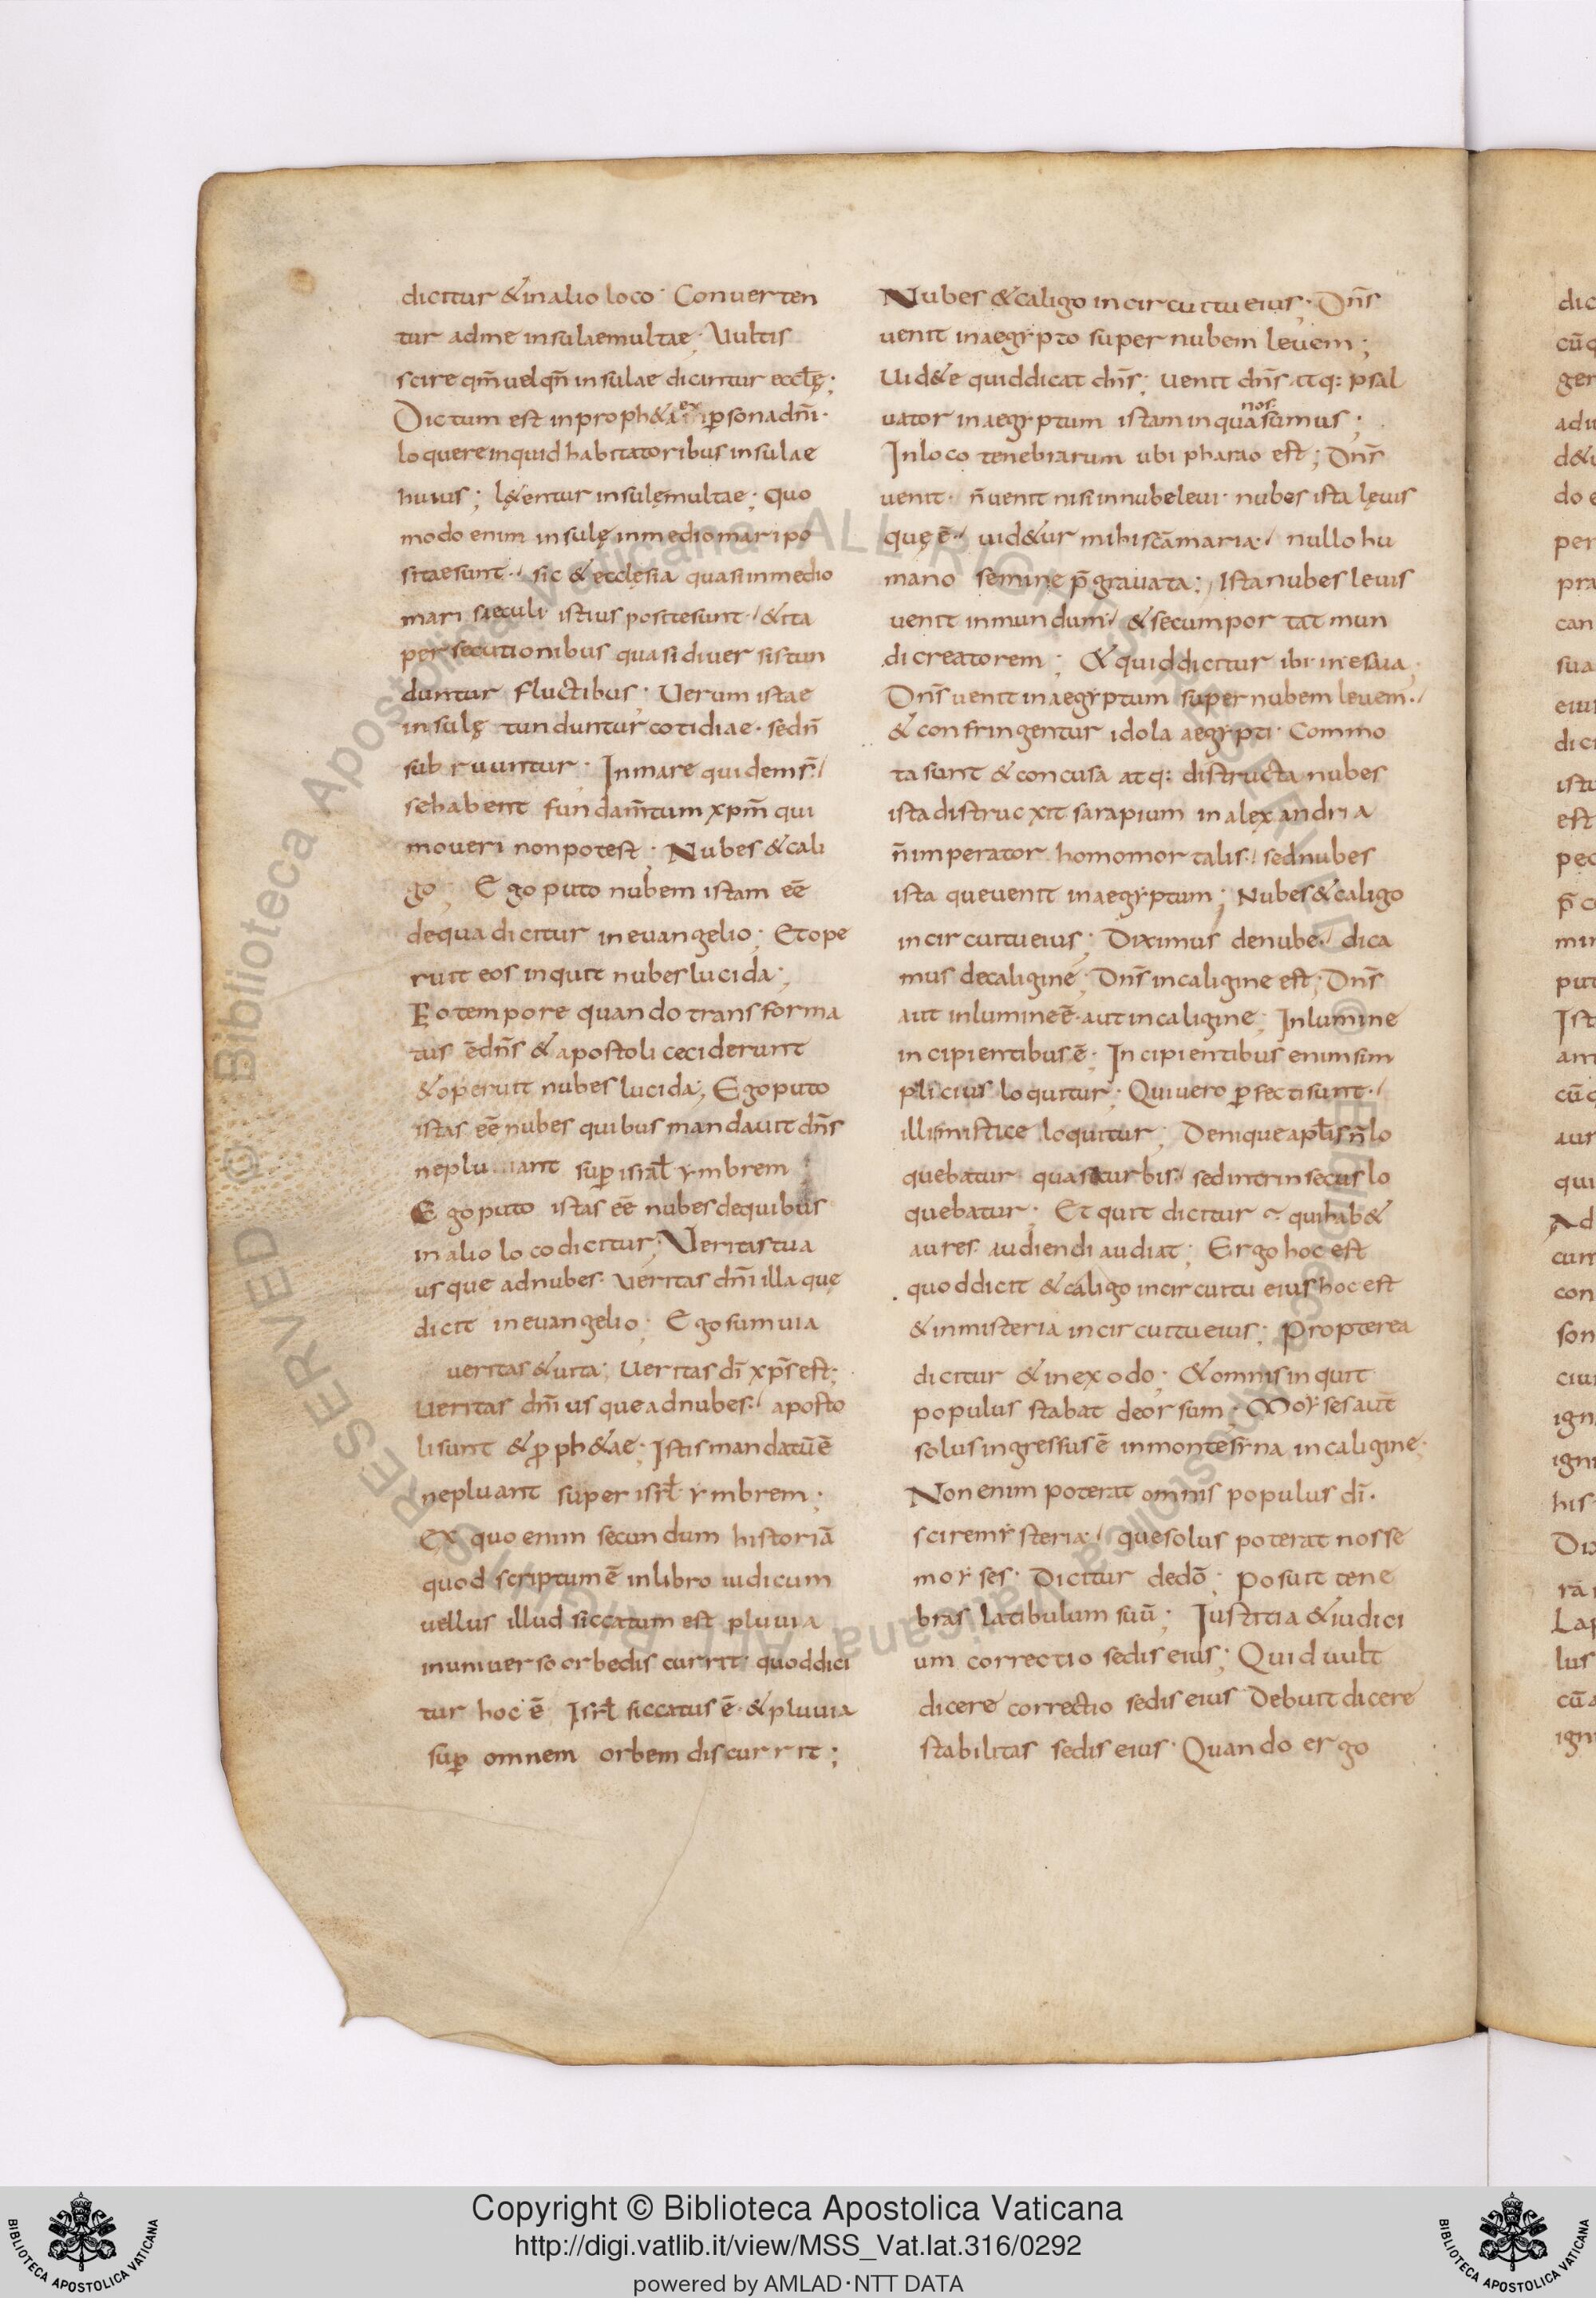 dicitur & in alio loco· Conuerten
tur adme insulae multae; Uultis
scire qm̄ uel qn̄ insulae dicuntur eccłę;
Dictum est in proph&a ex ꝑsona dn̄i·
loquere inquid habitatoribus insulae
huius; lę&entur insulęmultae; Quo
modo enim insulę inmedio mari po
sitaesunt·/ sic & ecclęsia quasi inmedio
mari saeculi istius positesunt·/ &ita
persecutionibus quasi diuersis tun
duntur fluctibus; Uerum istae
insulę tunduntur cotidiae· sed n̄
subruuntur; Inmare quidem sr̄·/
se habent fundam̄tum xpm̄ qui
moueri non potest; Nubes & cali
go; Ego puto nubem istam eē
dequa dicitur in euangelio; Et ope
ruit eos inquit nubes lucida;
Eo tempore quando transforma
tus ē dn̄s & apostoli ceciderunt
& operuit nubes lucida; Ego puto
istas eē nubes quibus mandauit dn̄s
neplu ant suꝑ israł ymbrem
Ego puto istas eē nubes dequibus
in alio loco dicitur; Ueritas tua
usque adnubes· Ueritas dn̄i illa quę
dicit in euangelio; Ego sum uia
ueritas & uita; Ueritas dī xp̄s est;
Ueritas dn̄i usque adnubes·/ aposto
li sunt & ꝓph&ae; Istis mandatū ē
nepluant super isrł ymbrem;
Ex quo enim secundum historiā
quod scriptum ē inlibro iudicum
uellus illud siccatum est pluuia
inuniuerso orbe discurrit· quod dici
tur hoc ē Isrł siccatus ē· & pluuia
suꝑ omnem orbem discurrit;
Nubes & caligo in circuitu eius; Dn̄s
uenit inaegypto super nubem leuem;
Uid&e quid dicat dn̄s; uenit dn̄s· atq: psal
uator inaegyptum istam in qua nos sumus;
Inloco tenebrarum ubi pharao est; Dn̄s
uenit· n̄ uenit nisi innube leui· nubes ista lęuis
quę ē·/ uid&ur mihi scā maria·/ nullo hu
mano semine p̄grauata;/ Ista nubes leuis
uenit inmundum·/ & secum portat mun
di creatorem; & quid dicitur ibi in esaia;
Dn̄s uenit inaegyptum super nubem leuem·/
& confringentur idola aegypti· Commo
ta sunt & concusa atq: distructa nubes
ista distrucxit sarapium in alexandria
n̄ imperator homo mortalis·/ sed nubes
ista que uenit inaegyptum; Nubes & caligo
in circuitu eius; Diximus de nube·/ dica
mus de caligine; Dn̄s in caligine est; Dn̄s
aut in lumine ē· aut in caligine; In lumine
incipientibus ē; Incipientibus enim sim
plicius loquitur; Qui uero ꝑfecti sunt·/
illis mistice loquitur; Denique apłis n̄ lo
quebatur quasi turbis·/ sed intrinsecus lo
quebatur; Et quit dicitur ~ qui hab&
aures audiendi audiat; Ergo hoc est
quod dicit & caligo in circuitu eius hoc est
& in misteria in circuitu eius; Propterea
dicitur & in exodo; & omnis inquit
populus stabat deorsum; Moyses aut̄
solus ingressus ē in monte syna in caligine;
Non enim poterat omnis populus dī·
scire mysteria·/ que solus poterat nosse
moyses· Dicitur de dō; Posuit tene
bras latibulum suū; Iustitia & iudici
um correctio sedis eius; Quid uult
dicere correctio sedis eius Debuit dicere
stabilitas sedis eius· Quando ergo
Copyright © Biblioteca Apostolica Vaticana
http://digi.vatlib.it/view/MSS_Vat.lat.316/0292
powered by AMLAD·NTT DATA